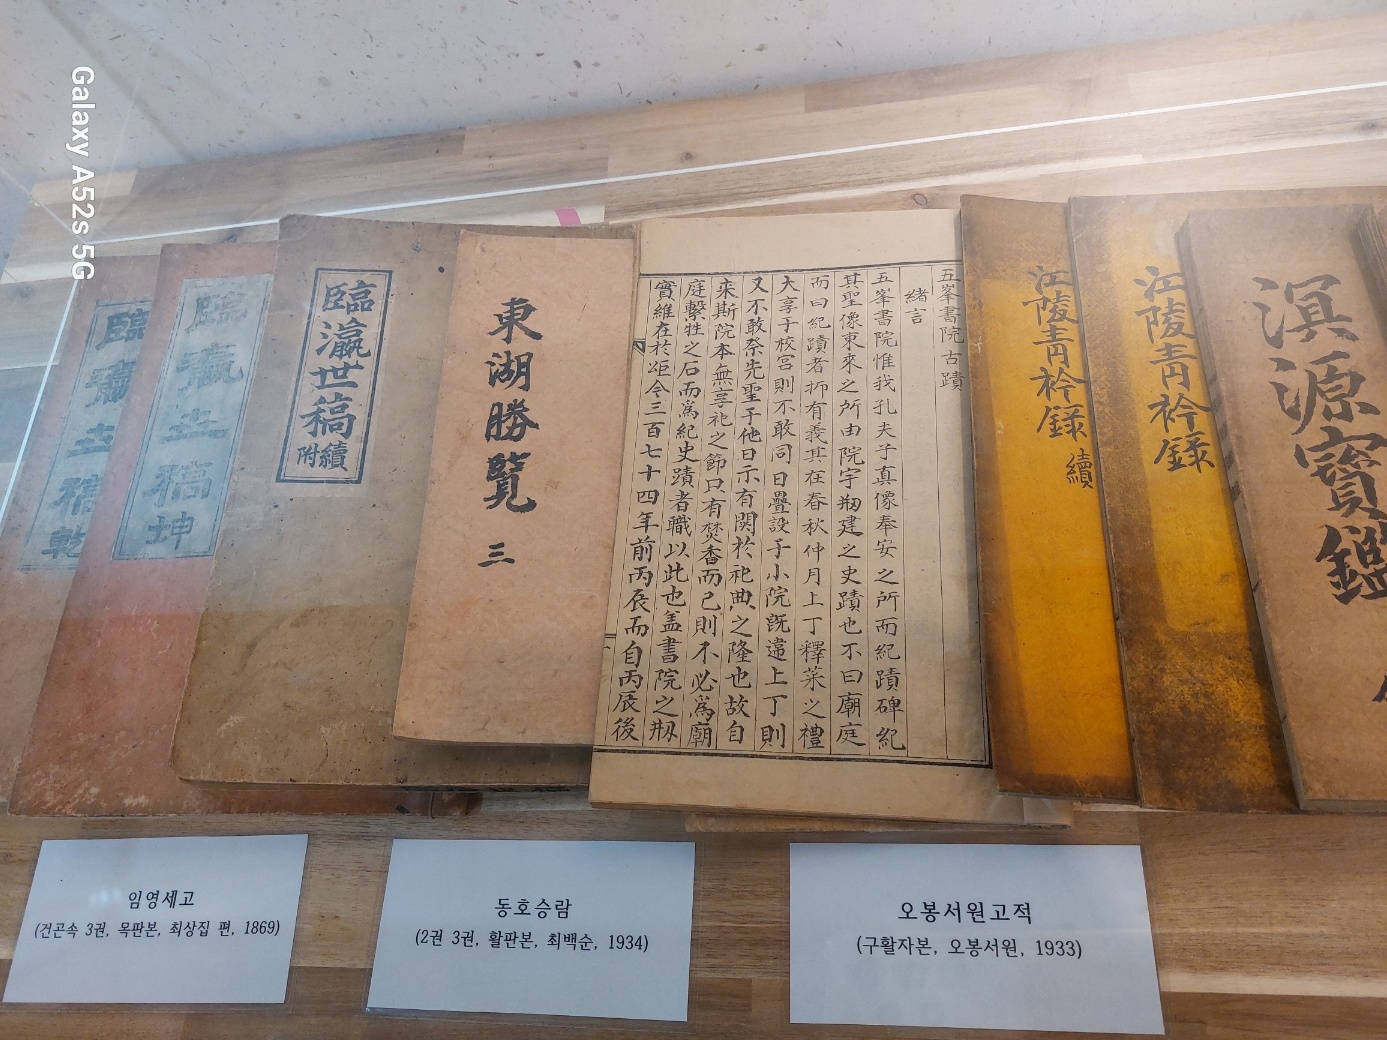 Galaxy A52s 5G
臨瀛世稿 乾
臨瀛世稿 坤
臨瀛世稿
附續
東湖勝覧 三
五峯書院古蹟
緒言
五峯書院惟我孔夫子真像奉安之所而紀蹟碑紀
其聖像東來之所由院宇刱建之史蹟也不曰廟庭
而曰紀蹟者抑有義其在春秋仲月上丁釋菜之禮
大享于校宮則不敢同日疊設于小院旣違上丁則
又不敢祭先聖于他日示有関於祀典之隆也故自
来斯院本無享祀之節只有焚香而已則不必為廟
庭繫牲之石而為紀史蹟者職以此也盖書院之刱
實維在於距今三百七十四年前丙辰而自丙辰後
江陵青衿録 續
江陵青衿録
溟源寶鑑
임영세고
(건곤속 3권, 목판본, 최상집 편, 1869)
동호승람
(2권 3권, 활판본, 최백순, 1934)
오봉서원고적
(구활자본, 오봉서원, 1933)